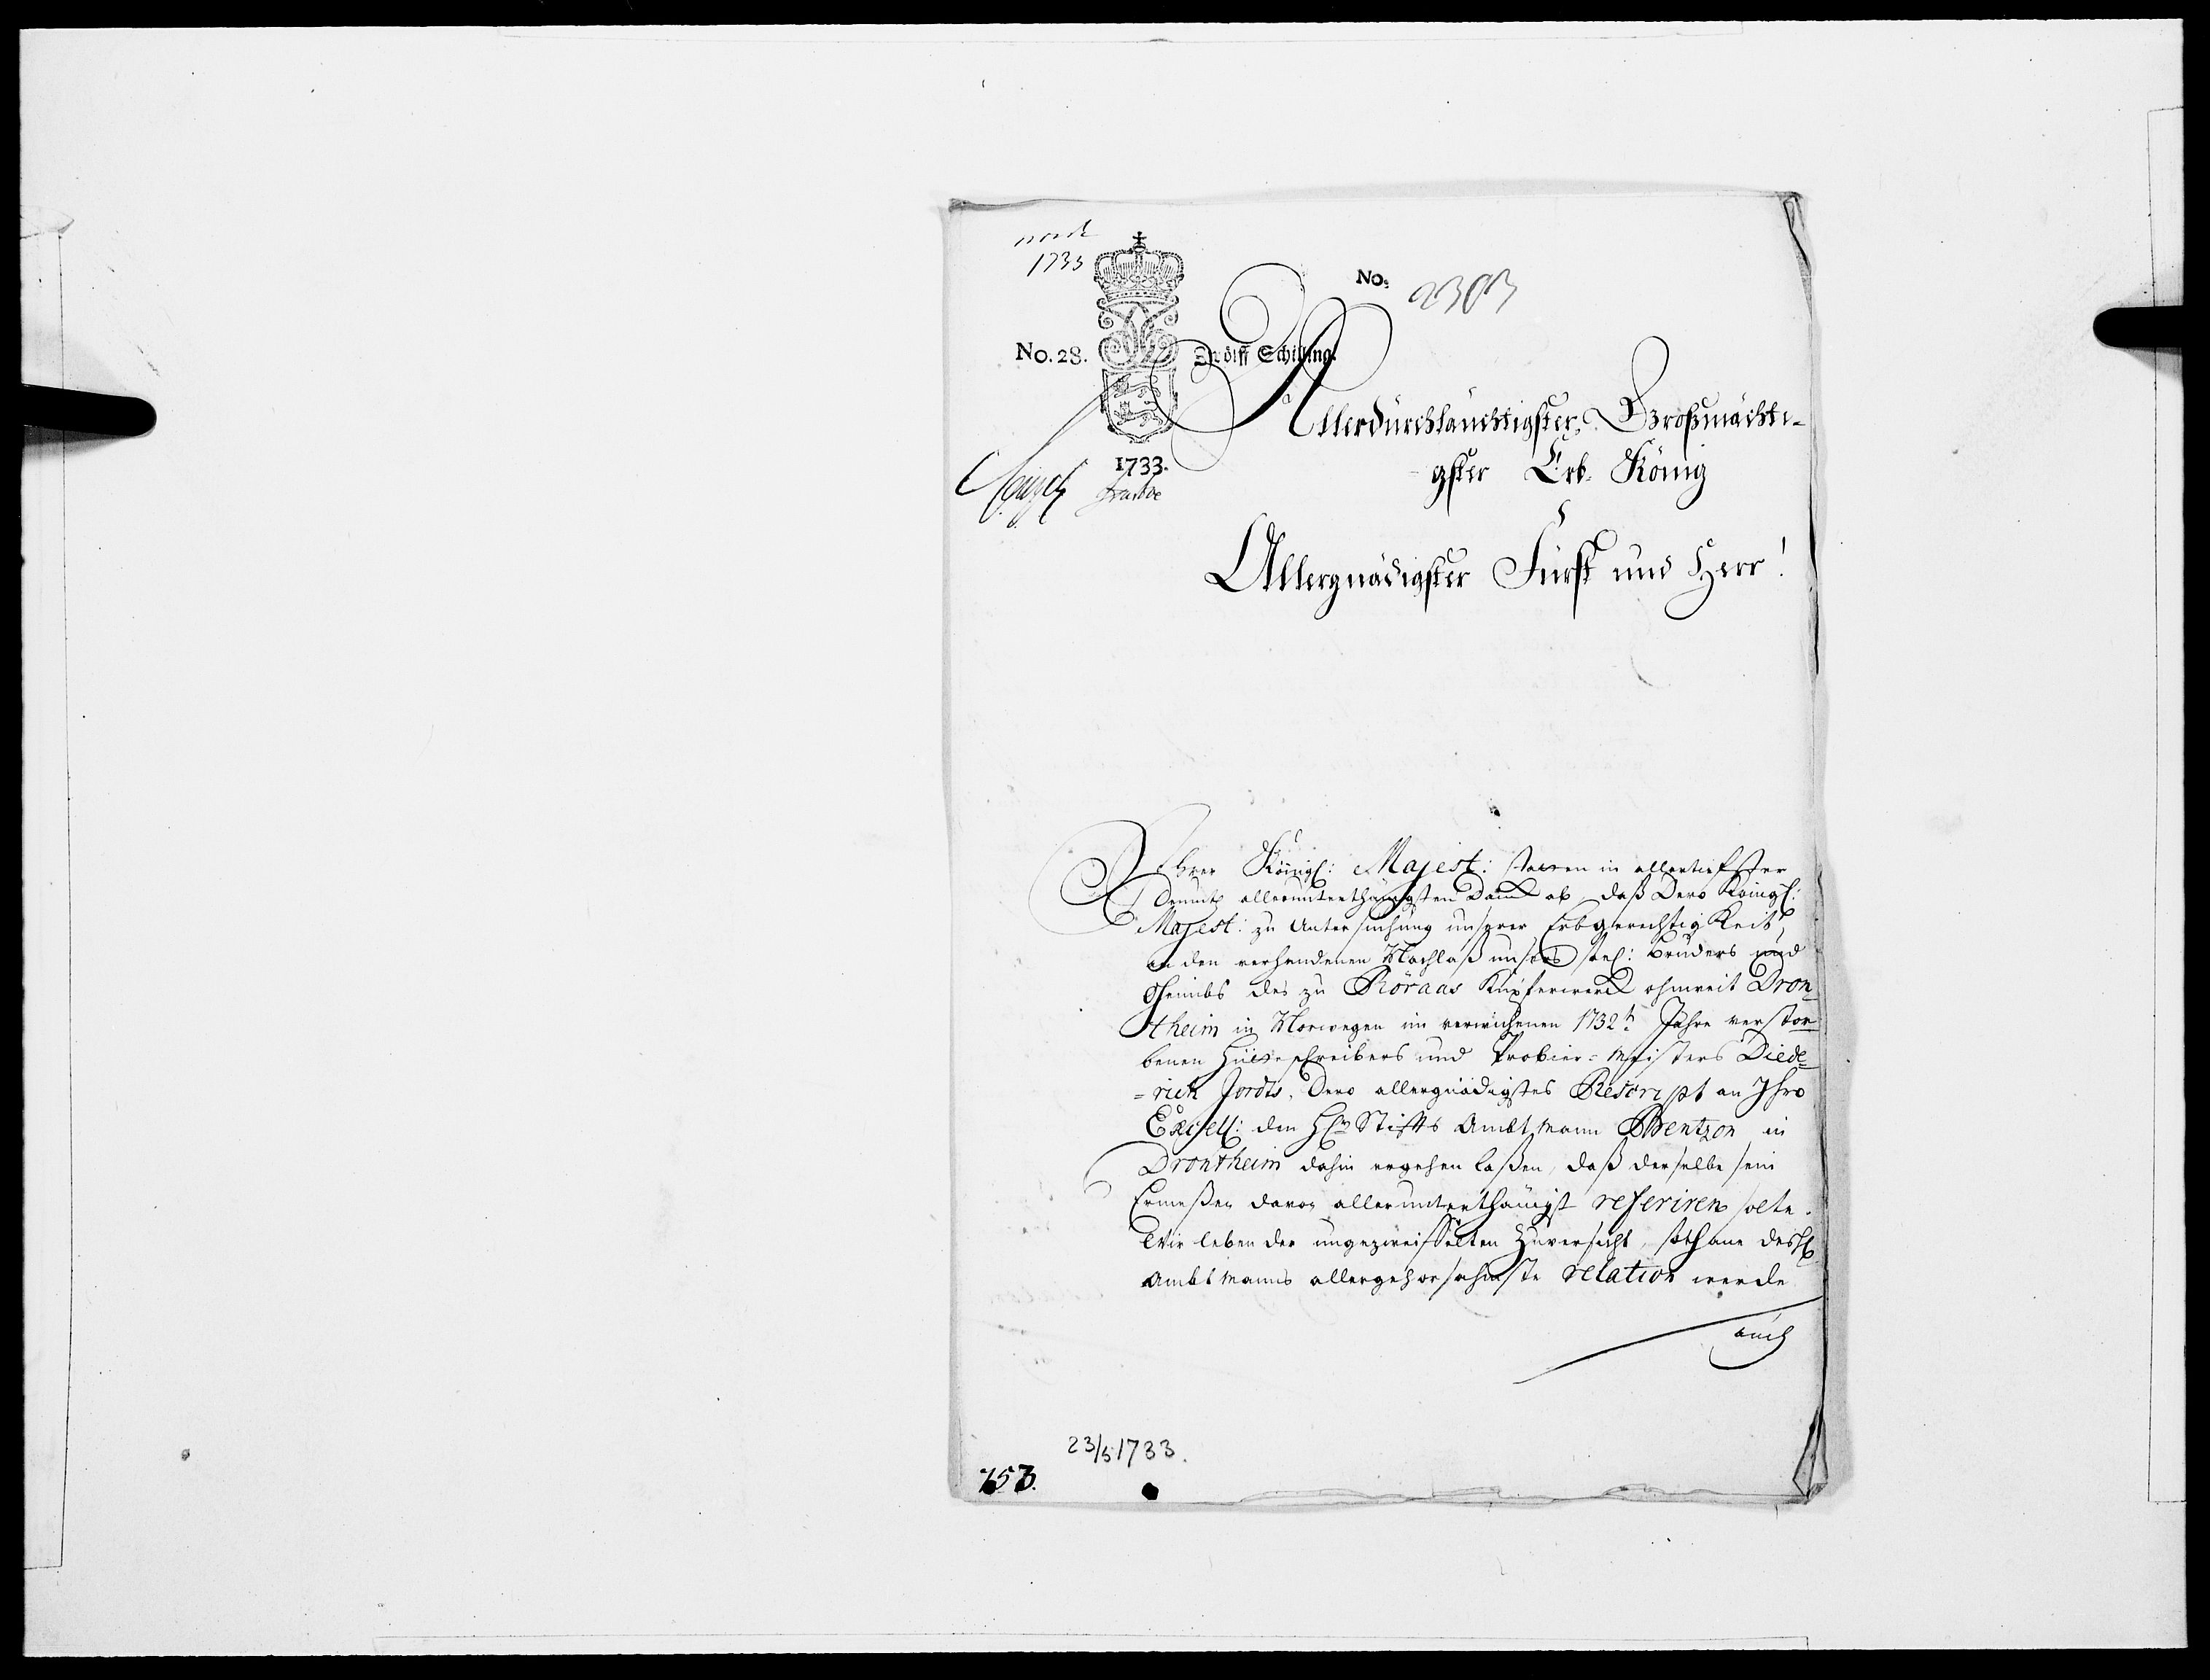 1733
No: 2303
No. 28. Zwölff Schilling.
Allerdürchläuchtigster, Großmächti-
gster Erb- König
1733.
Allergnädigster Fürst und Herr!
Ihrer Königl: Majest: statten in allertiefster
Demuth allerunterthänigsten Danck ab, daß Dero Königl:
Majest: zu Untersuchung unserer Erbgerechtigkeit,
an den verhandenen Nachlaß unsers seel: Bruders und
Oheimbs des zu Röraas Kupferwerck ohnweit Dron
theim in Norwegen im verwichenen 1732th Jahre verstor
benen Hütteschreibers und Probier-Meisters Diede
=rich Jordts, Dero allergnädigstes Rescript an Ihro
Excell: den Hn Stiffts Ambtmann Bentzon in
Drontheim dahin ergehen laßen, daß derselbe sein
Ermeßen davon allerunterthänigst referiren solte.
Wir leben der ungezweiffelten Zuversicht, sothane des H
Ambtmanns allergehorsahmste relation werde
auch
23/5 1733.
753.